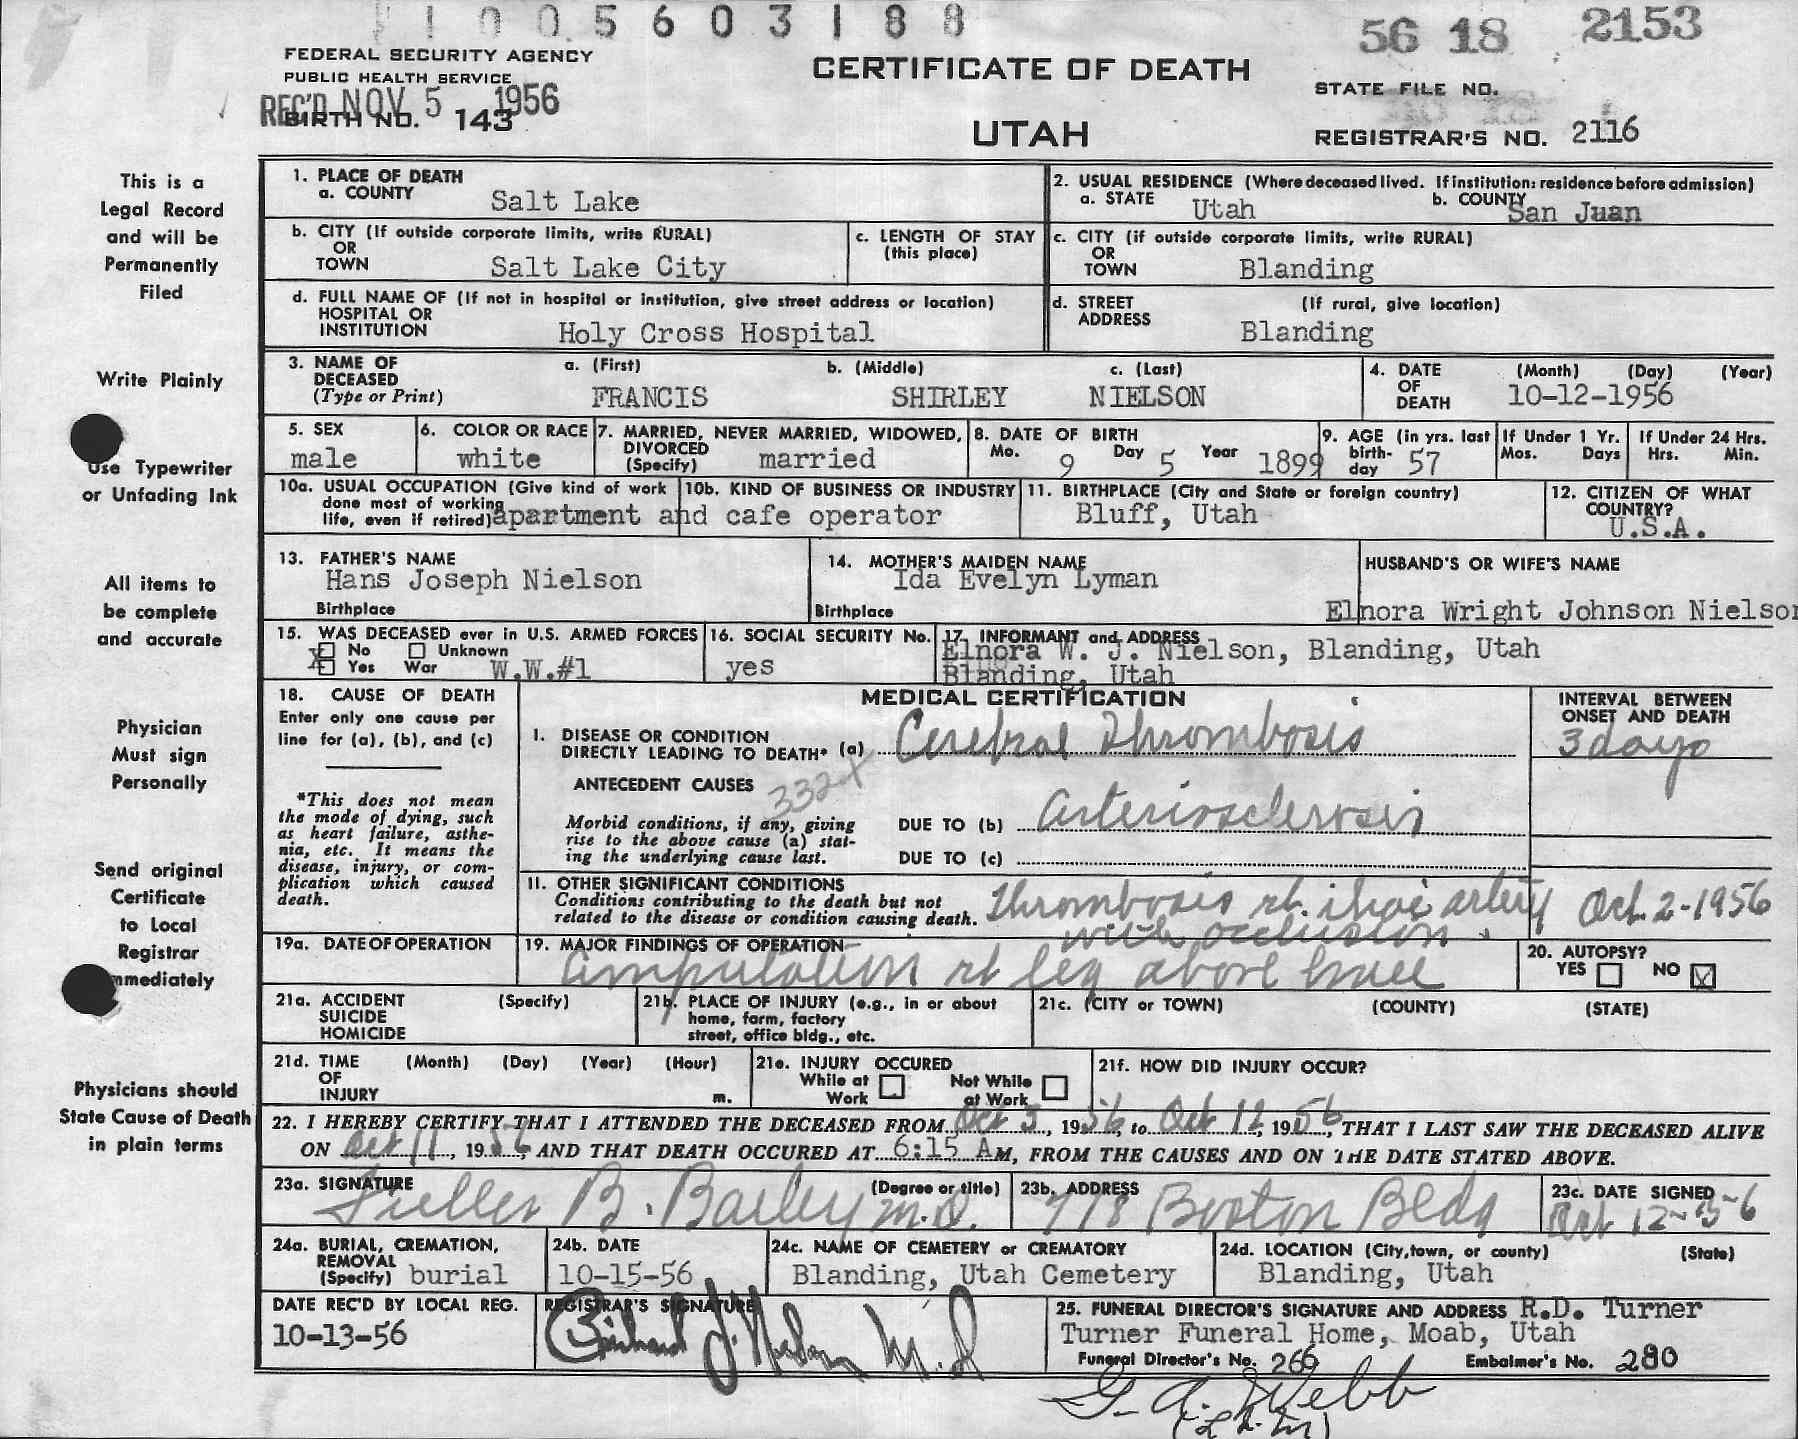 1005603188
56 18 2153
FEDERAL SECURITY AGENCY
PUBLIC HEALTH SERVICE
REC'D NOV 5 1956
BIRTH NO. 143
CERTIFICATE OF DEATH
UTAH
STATE FILE NO.
REGISTRAR'S NO. 2116
This is a
Legal Record
and will be
Permanently
Filed
Write Plainly
Use Typewriter
or Unfading Ink
All items to
be complete
and accurate
Physician
Must sign
Personally
Send original
Certificate
to Local
Registrar
mmediately
Physicians should
State Cause of Death
in plain terms
1. PLACE OF DEATH
a. COUNTY Salt Lake
2. USUAL RESIDENCE (Where deceased lived. If institution: residence before admission)
a. STATE Utah b. COUNTY San Juan
b. CITY (If outside corporate limits, write RURAL)
OR
TOWN Salt Lake City
c. LENGTH OF STAY
(this place)
c. CITY (if outside corporate limits, write RURAL)
OR
TOWN Blanding
d. FULL NAME OF (If not in hospital or institution, give street address or location)
HOSPITAL OR
INSTITUTION Holy Cross Hospital
d. STREET (If rural, give location)
ADDRESS Blanding
3. NAME OF a. (First) b. (Middle) c. (Last)
DECEASED
(Type or Print) FRANCIS SHIRLEY NIELSON
4. DATE (Month) (Day) (Year)
OF
DEATH 10-12-1956
5. SEX
male
6. COLOR OR RACE
white
7. MARRIED, NEVER MARRIED, WIDOWED,
DIVORCED
(Specify) married
8. DATE OF BIRTH
Mo. 9 Day 5 Year 1899
9. AGE (in yrs. last
birth-
day 57
If Under 1 Yr.
Mos. Days
If Under 24 Hrs.
Hrs. Min.
10a. USUAL OCCUPATION (Give kind of work
done most of working
life, even if retired) apartment and cafe operator
10b. KIND OF BUSINESS OR INDUSTRY
11. BIRTHPLACE (City and State or foreign country)
Bluff, Utah
12. CITIZEN OF WHAT
COUNTRY?
U.S.A.
13. FATHER'S NAME
Hans Joseph Nielson
Birthplace
14. MOTHER'S MAIDEN NAME
Ida Evelyn Lyman
Birthplace
HUSBAND'S OR WIFE'S NAME
Elnora Wright Johnson Nielson
15. WAS DECEASED ever in U.S. ARMED FORCES
No Unknown
X Yes War W.W.#1
16. SOCIAL SECURITY No.
yes
17. INFORMANT and ADDRESS
Elnora W. J. Nielson, Blanding, Utah
Blanding, Utah
18. CAUSE OF DEATH
Enter only one cause per
line for (a), (b), and (c)
*This does not mean
the mode of dying, such
as heart failure, asthe-
nia, etc. It means the
disease, injury, or com-
plication which caused
death.
MEDICAL CERTIFICATION
INTERVAL BETWEEN
ONSET AND DEATH
I. DISEASE OR CONDITION
DIRECTLY LEADING TO DEATH* (a) Cerebral Thrombosis 3 days
ANTECEDENT CAUSES 332X
Morbid conditions, if any, giving
rise to the above cause (a) stat-
ing the underlying cause last.
DUE TO (b) arteriosclerosis
DUE TO (c)
II. OTHER SIGNIFICANT CONDITIONS
Conditions contributing to the death but not
related to the disease or condition causing death.
Thrombosis rt. iliac artery Oct. 2-1956
with occlusion.
19a. DATE OF OPERATION
19. MAJOR FINDINGS OF OPERATION
amputation rt leg above knee
20. AUTOPSY?
YES NO X
21a. ACCIDENT (Specify)
SUICIDE
HOMICIDE
21b. PLACE OF INJURY (e.g., in or about
home, farm, factory
street, office bldg., etc.
21c. (CITY or TOWN) (COUNTY) (STATE)
21d. TIME (Month) (Day) (Year) (Hour)
OF
INJURY m.
21e. INJURY OCCURED
While at Work Not While at Work
21f. HOW DID INJURY OCCUR?
22. I HEREBY CERTIFY THAT I ATTENDED THE DECEASED FROM Oct 3, 1956, to Oct 12, 1956, THAT I LAST SAW THE DECEASED ALIVE
ON Oct 11, 1956, AND THAT DEATH OCCURED AT 6:15 AM, FROM THE CAUSES AND ON THE DATE STATED ABOVE.
23a. SIGNATURE (Degree or title)
Fuller B. Bailey M.D.
23b. ADDRESS
718 Boston Bldg
23c. DATE SIGNED
Oct 12-56
24a. BURIAL, CREMATION,
REMOVAL
(Specify) burial
24b. DATE
10-15-56
24c. NAME OF CEMETERY or CREMATORY
Blanding, Utah Cemetery
24d. LOCATION (City, town, or county) (State)
Blanding, Utah
DATE REC'D BY LOCAL REG.
10-13-56
REGISTRAR'S SIGNATURE
25. FUNERAL DIRECTOR'S SIGNATURE AND ADDRESS R.D. Turner
Turner Funeral Home, Moab, Utah
Funeral Director's No. 266 Embalmer's No. 280
G. A. Webb